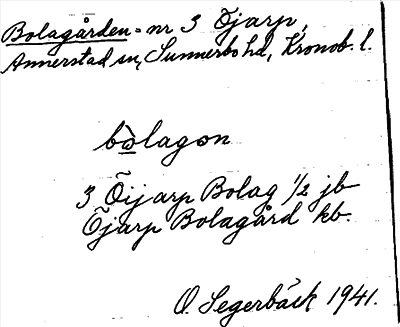 Bolagården = nr 3 Õjarp,
Annerstad sn, Sunnerbo hd, Kronob. l.
bò̲lagon
3 Õijarp Bolag 1/2 jb
Õjarp Bolagård kb.
O. Segerbäck 1941.